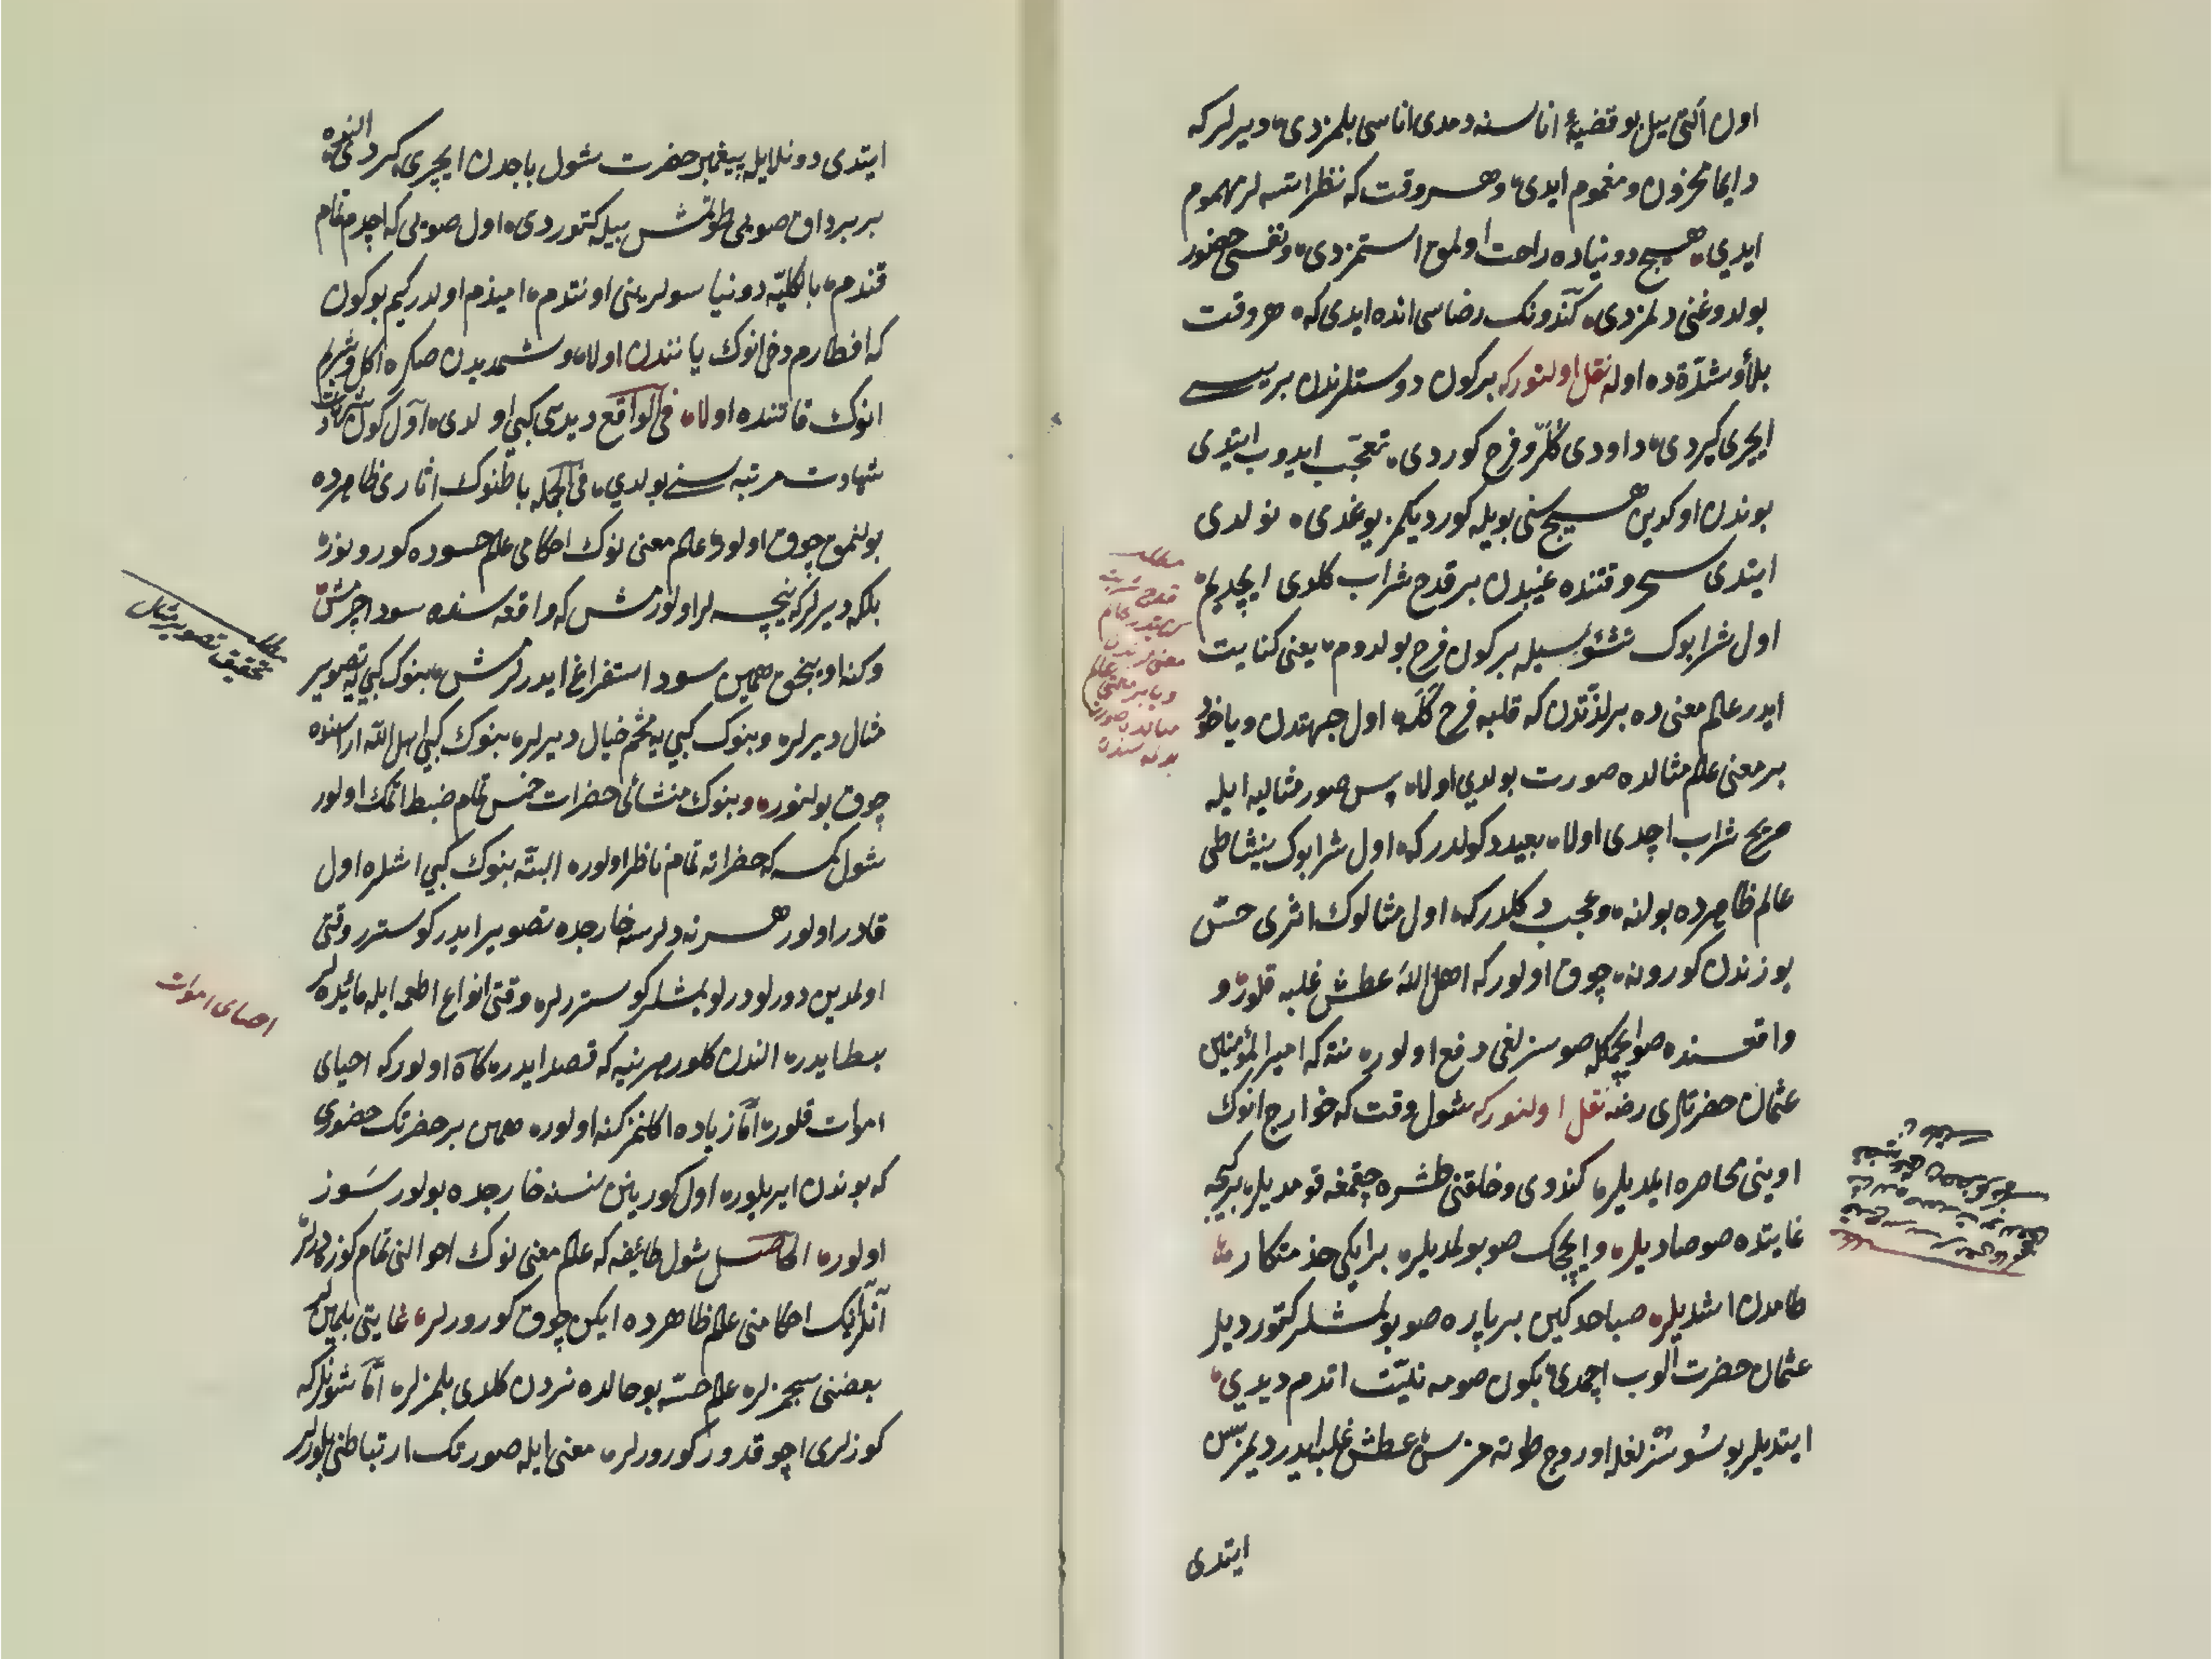 اول آلتی ییل بو قضیهٔ اناسنه دمدی اناسی بلمزدی دیرلر که
دایما محزون و مغموم ایدی و هر وقت که نظر اتسه لر مهموم
ایدی هیچ دونیاده راحت اولمق استمزدی و نفسی حضور
بولدوغنی دلمزدی کندونک رضاسی انده ایدی که هر وقت
بلاؤ شدّة ده اوله نقل اولنور که بر کون دوستلرندن بریسی
ایچری کیردی داودی کلر و فرح کوردی تعجّب ایدوب ایتدی
بوندن اوکدین هیچ سنی بویله کوردیکمز یوغدی نولدی
ایتدی سحر وقتنده غیبدن بر قدح شراب کلدی ایچدیم
اول شرابوک نشئوسیله بر کون فرح بولدوم یعنی کنایت
ایدر عالم معنی ده بر لذّتدن که قلبه فرح کلر اول جهتدن ویاخود
بر معنی عالم مثالده صورت بولدی اولا پس صور مثالیه ایله
صریح شراب اچدی اولا بعید دکولدر که اول شرابوک نشاطی
عالم ظاهرده بولنه و عجب دکلدر که اول مثالوک اثری حسّ
یوزندن کورونه چوق اولور که اهل الله عطش غلبه قلور و
واقعسنده صو ایچمکله صوسزلغی دفع اولور نته که امیر المؤمنین
عثمان حضرتلری رضه نقل اولنور که شول وقت که خوارج انوک
اوینی محاصره ایلدیلر کندوی و خلقنی طشره چقمغه قومدیلر بر کیجه
غایتده صوصادیلر و ایچجک صو بولمدیلر بر ایکی خدمتکار
طامدن اشدیلر صباحه کین بر پاره صو بولمشلر کتوردیلر
عثمان حضرت آلوب اچمدی بکون صومه نیّت اتدم دیدی
ایتدیلر بو سوسزلغله اوروج طوته مزسن عطش غلبه ایدر دیمز سن
ایتدی
ایتدی دونله ایله پیغمبر حضرت شول باجدن ایچری کردی النده
بر برداق صویی طوتمش بیله کتوردی اول صویی که اچدم تمام
قندم بالکلیّه دونیا سولرینی اونتدم امیذم اولدر کیم بوکون
که افطارم دخی انوک یانندن اولا و شمدیدن صکره اکل و شربم
انوک قاتنده اولا فی الواقع دیدی کبی اولدی اول کون
شهادت مرتبه سنی بولدی فی الجمله باطنوک اثاری ظاهرده
بولنمق چوق اولور عالم معنی نوک احکامی عالم حسوده کورونور
بلکه دیرلر که نیچه لر اولورمش که واقعه سنده سود اچرمش
وکنه اویجق همین سود استفراغ ایدرلرمش بنوک کبی یه تصویر
مثال دیرلر و بنوک کبی یه مجسّم خیال دیرلر بنوک کبی اهل الله اراسنده
چوق بولنور و بنوک منشائی حضرات خمس تمام ضبط اتمک اولور
شول کمسه که حضراته تمام ناظر اولور البتّه بنوک کبی اشلره اول
قادر اولور هر نه دلرسه خارجده تصویر ایدر کوستررو وقتی
اولمدین دورلو دورلو یمشلر کوستررلر وقتی انواع اطعمه ایله مائیده لر
بسط ایدر الندن کلور هر نیه که قصد ایدر کاه اولور که احیای
اموات قلور امّا زیاده اکلنمز کنه اولور همین بر حضرتک حضوری
که بوندن ایریلور اول کورینن نسنه خارجده بولور سوز
اولور الحاصل شول طائفه که عالم معنی نوک احوالنی تمام کوزدرلر
آنلرنک احکامنی عالم ظاهرده ایکن چوق کورورلر غایتی بلمینلر
بعضنی سچمزلر عالم حسّه بو حالده نردن کلدی بلمزلر امّا شونلر که
کوزلری اچوقدور کورورلر معنی ایله صورتک ارتباطنی بلورلر
تحقیق تصویر مثال
احیای اموات